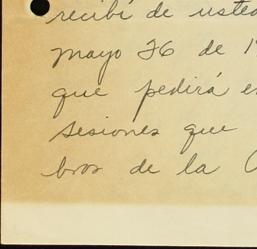 recibí de usted
mayo 26 de 1
que pedirá e
sesiones que
bros de la